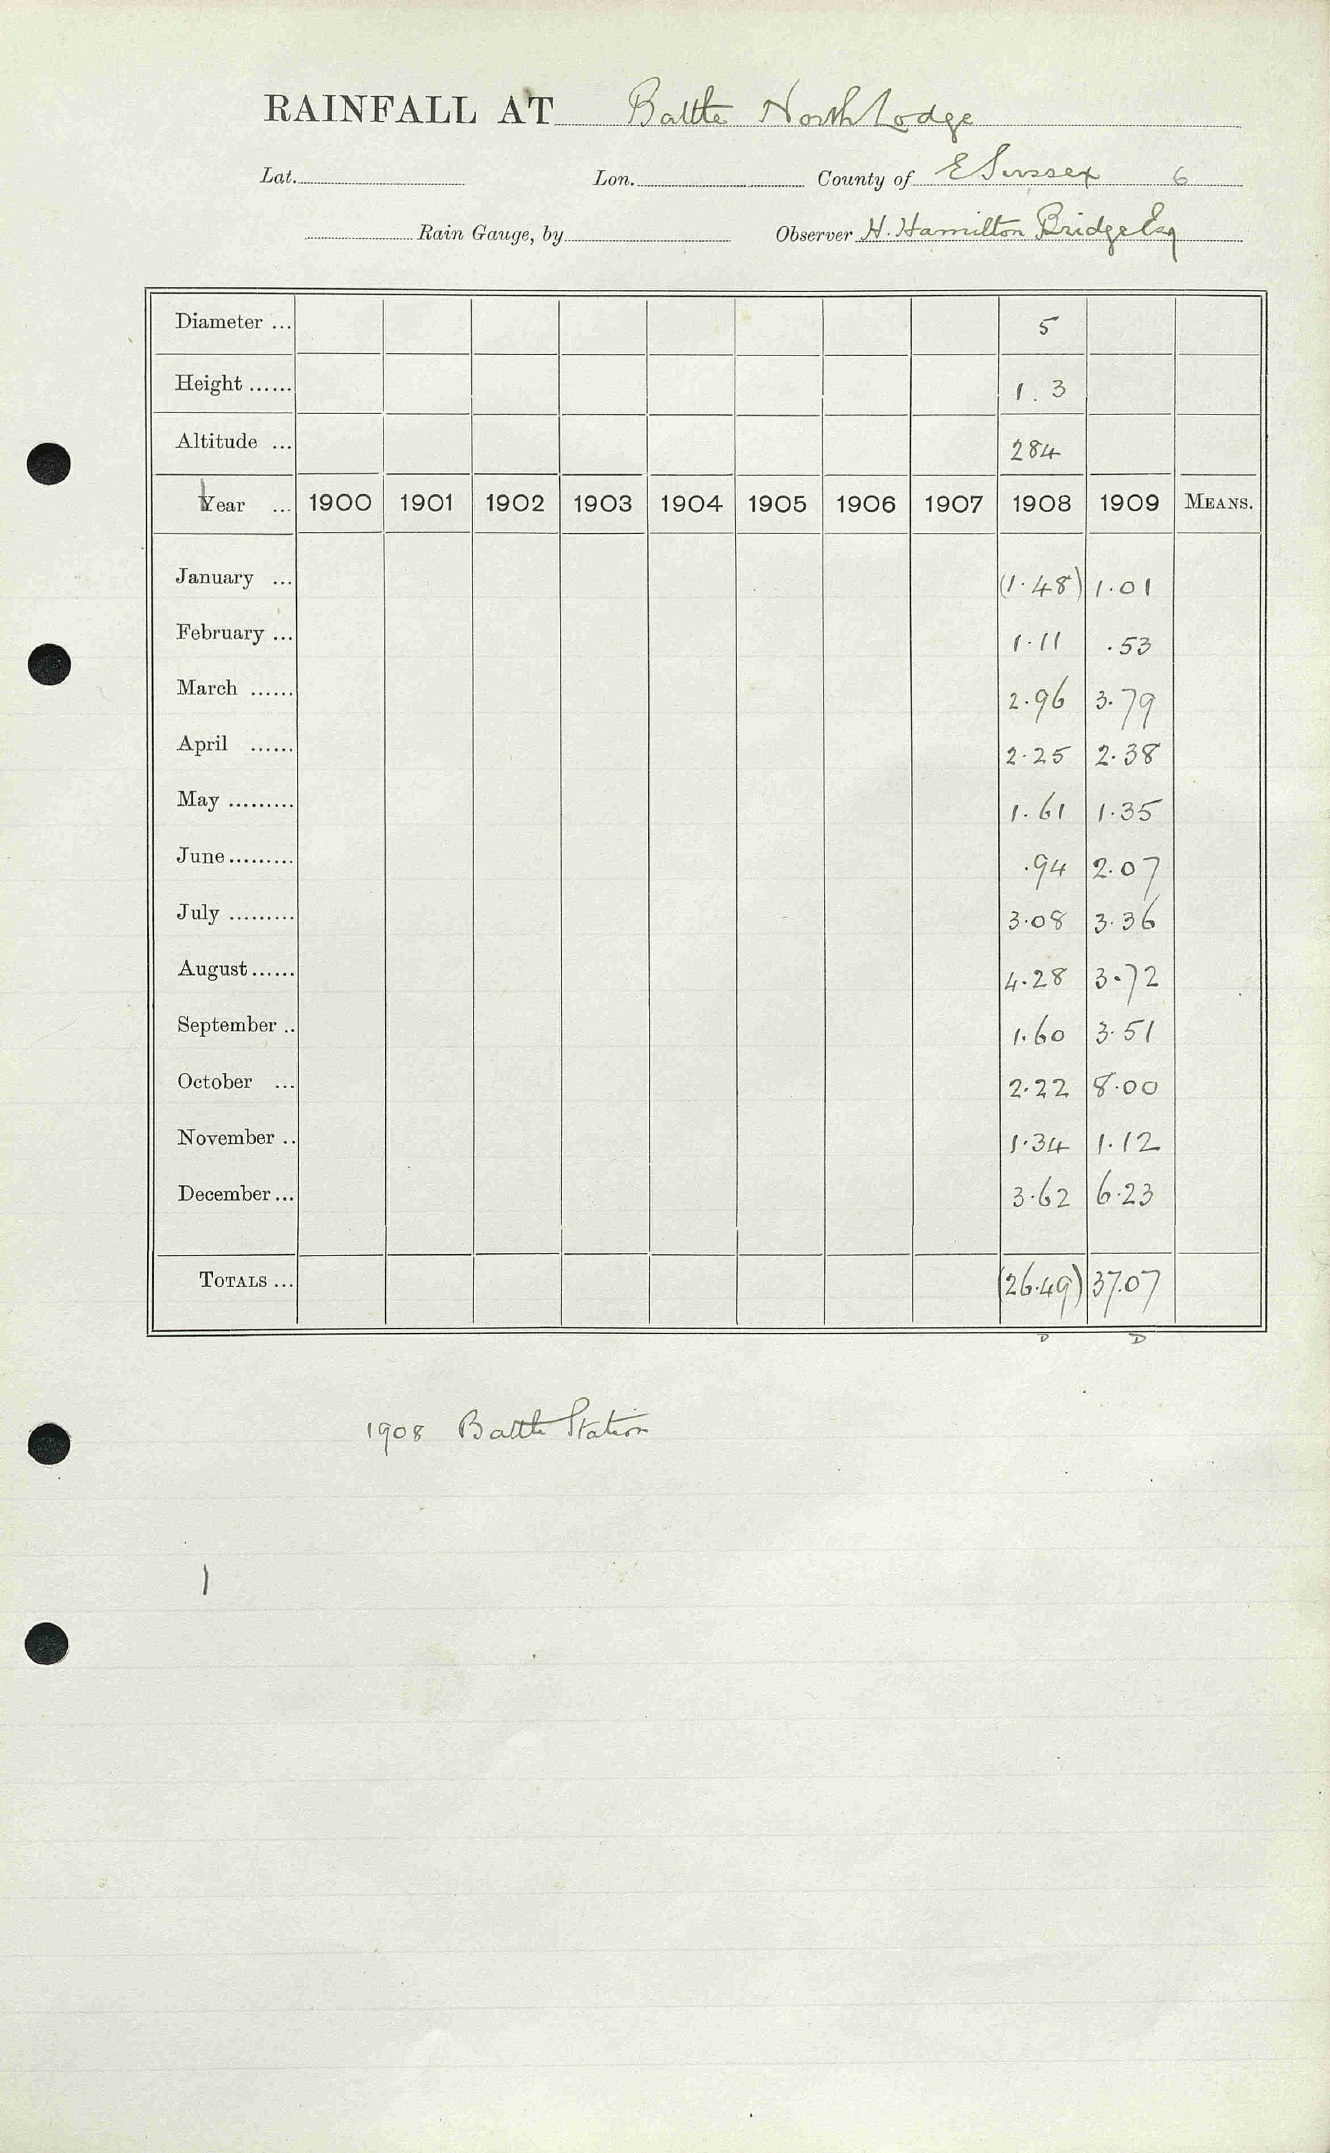 RAINFALL AT Battle North Lodge
Lat. Lon. County of E Sussex 6
Rain Gauge, by Observer H. Hamilton Bridge Esq
Diameter ... 5
Height ...... 1. 3
Altitude ... 284
Year ... 1900 1901 1902 1903 1904 1905 1906 1907 1908 1909 MEANS.
January ... (1.48) 1.01
February ... 1.11 .53
March ...... 2.96 3.79
April ...... 2.25 2.38
May ......... 1.61 1.35
June ......... .94 2.07
July ......... 3.08 3.36
August ...... 4.28 3.72
September .. 1.60 3.51
October ... 2.22 8.00
November .. 1.34 1.12
December ... 3.62 6.23
TOTALS ... (26.49) 37.07
D D
1908 Battle Station